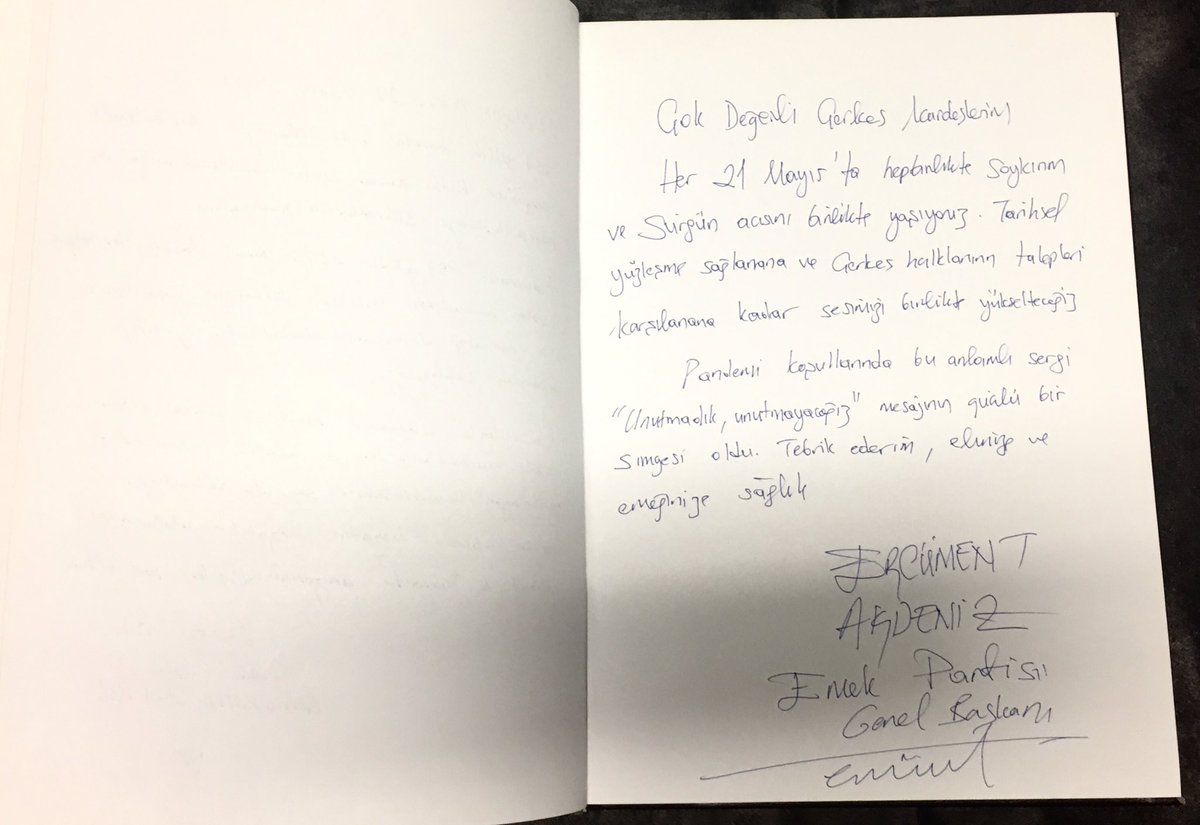 Çok Değerli Çerkes kardeşlerim
Her 21 Mayıs'ta hepbirlikte Soykırım
ve Sürgün acısını birlikte yaşıyoruz. Tarihsel
yüzleşme sağlanana ve Çerkes halklarının talepleri
karşılanana kadar sesimizi birlikte yükselteceğiz
Pandemi koşullarında bu anlamlı sergi
"Unutmadık, unutmayacağız" mesajının güçlü bir
simgesi oldu. Tebrik ederim, elinize ve
emeğinize sağlık
ERCÜMENT
AKDENİZ
Emek Partisi
Genel Başkanı